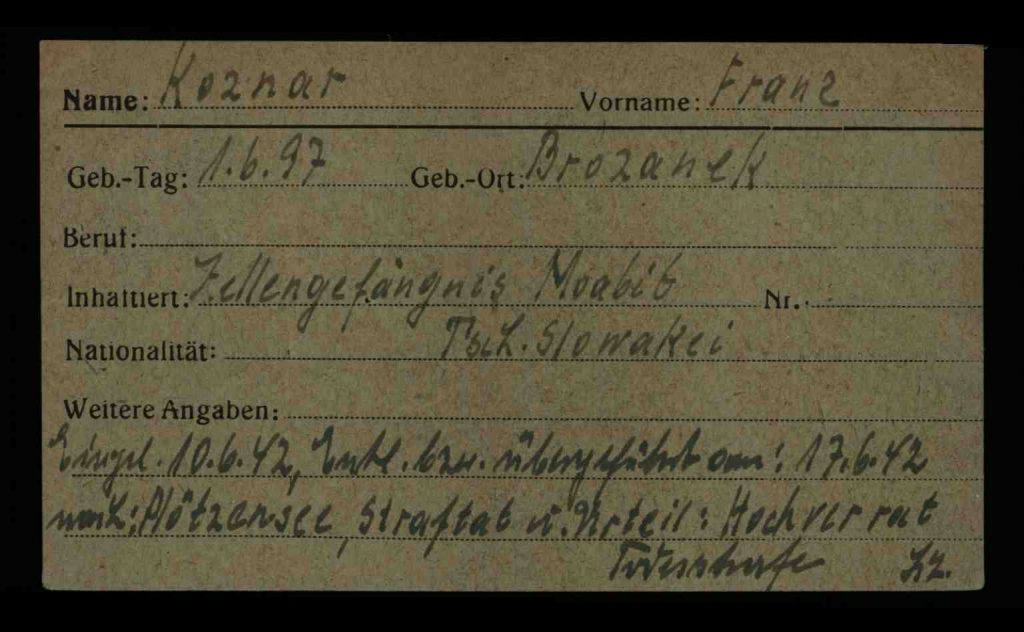 Name: Koznar Vorname: Franz
Geb.-Tag: 1.6.97 Geb.-Ort: Brozanek
Beruf:
Inhaftiert: Zellengefängnis Moabit Nr.
Nationalität: Tsch. Slowakei
Weitere Angaben:
Eingel. 10.6.42, Entl. bzw. übergeführt am: 17.6.42
nach: Plötzensee, Straftat u. Urteil: Hochverrat
Todesstrafe